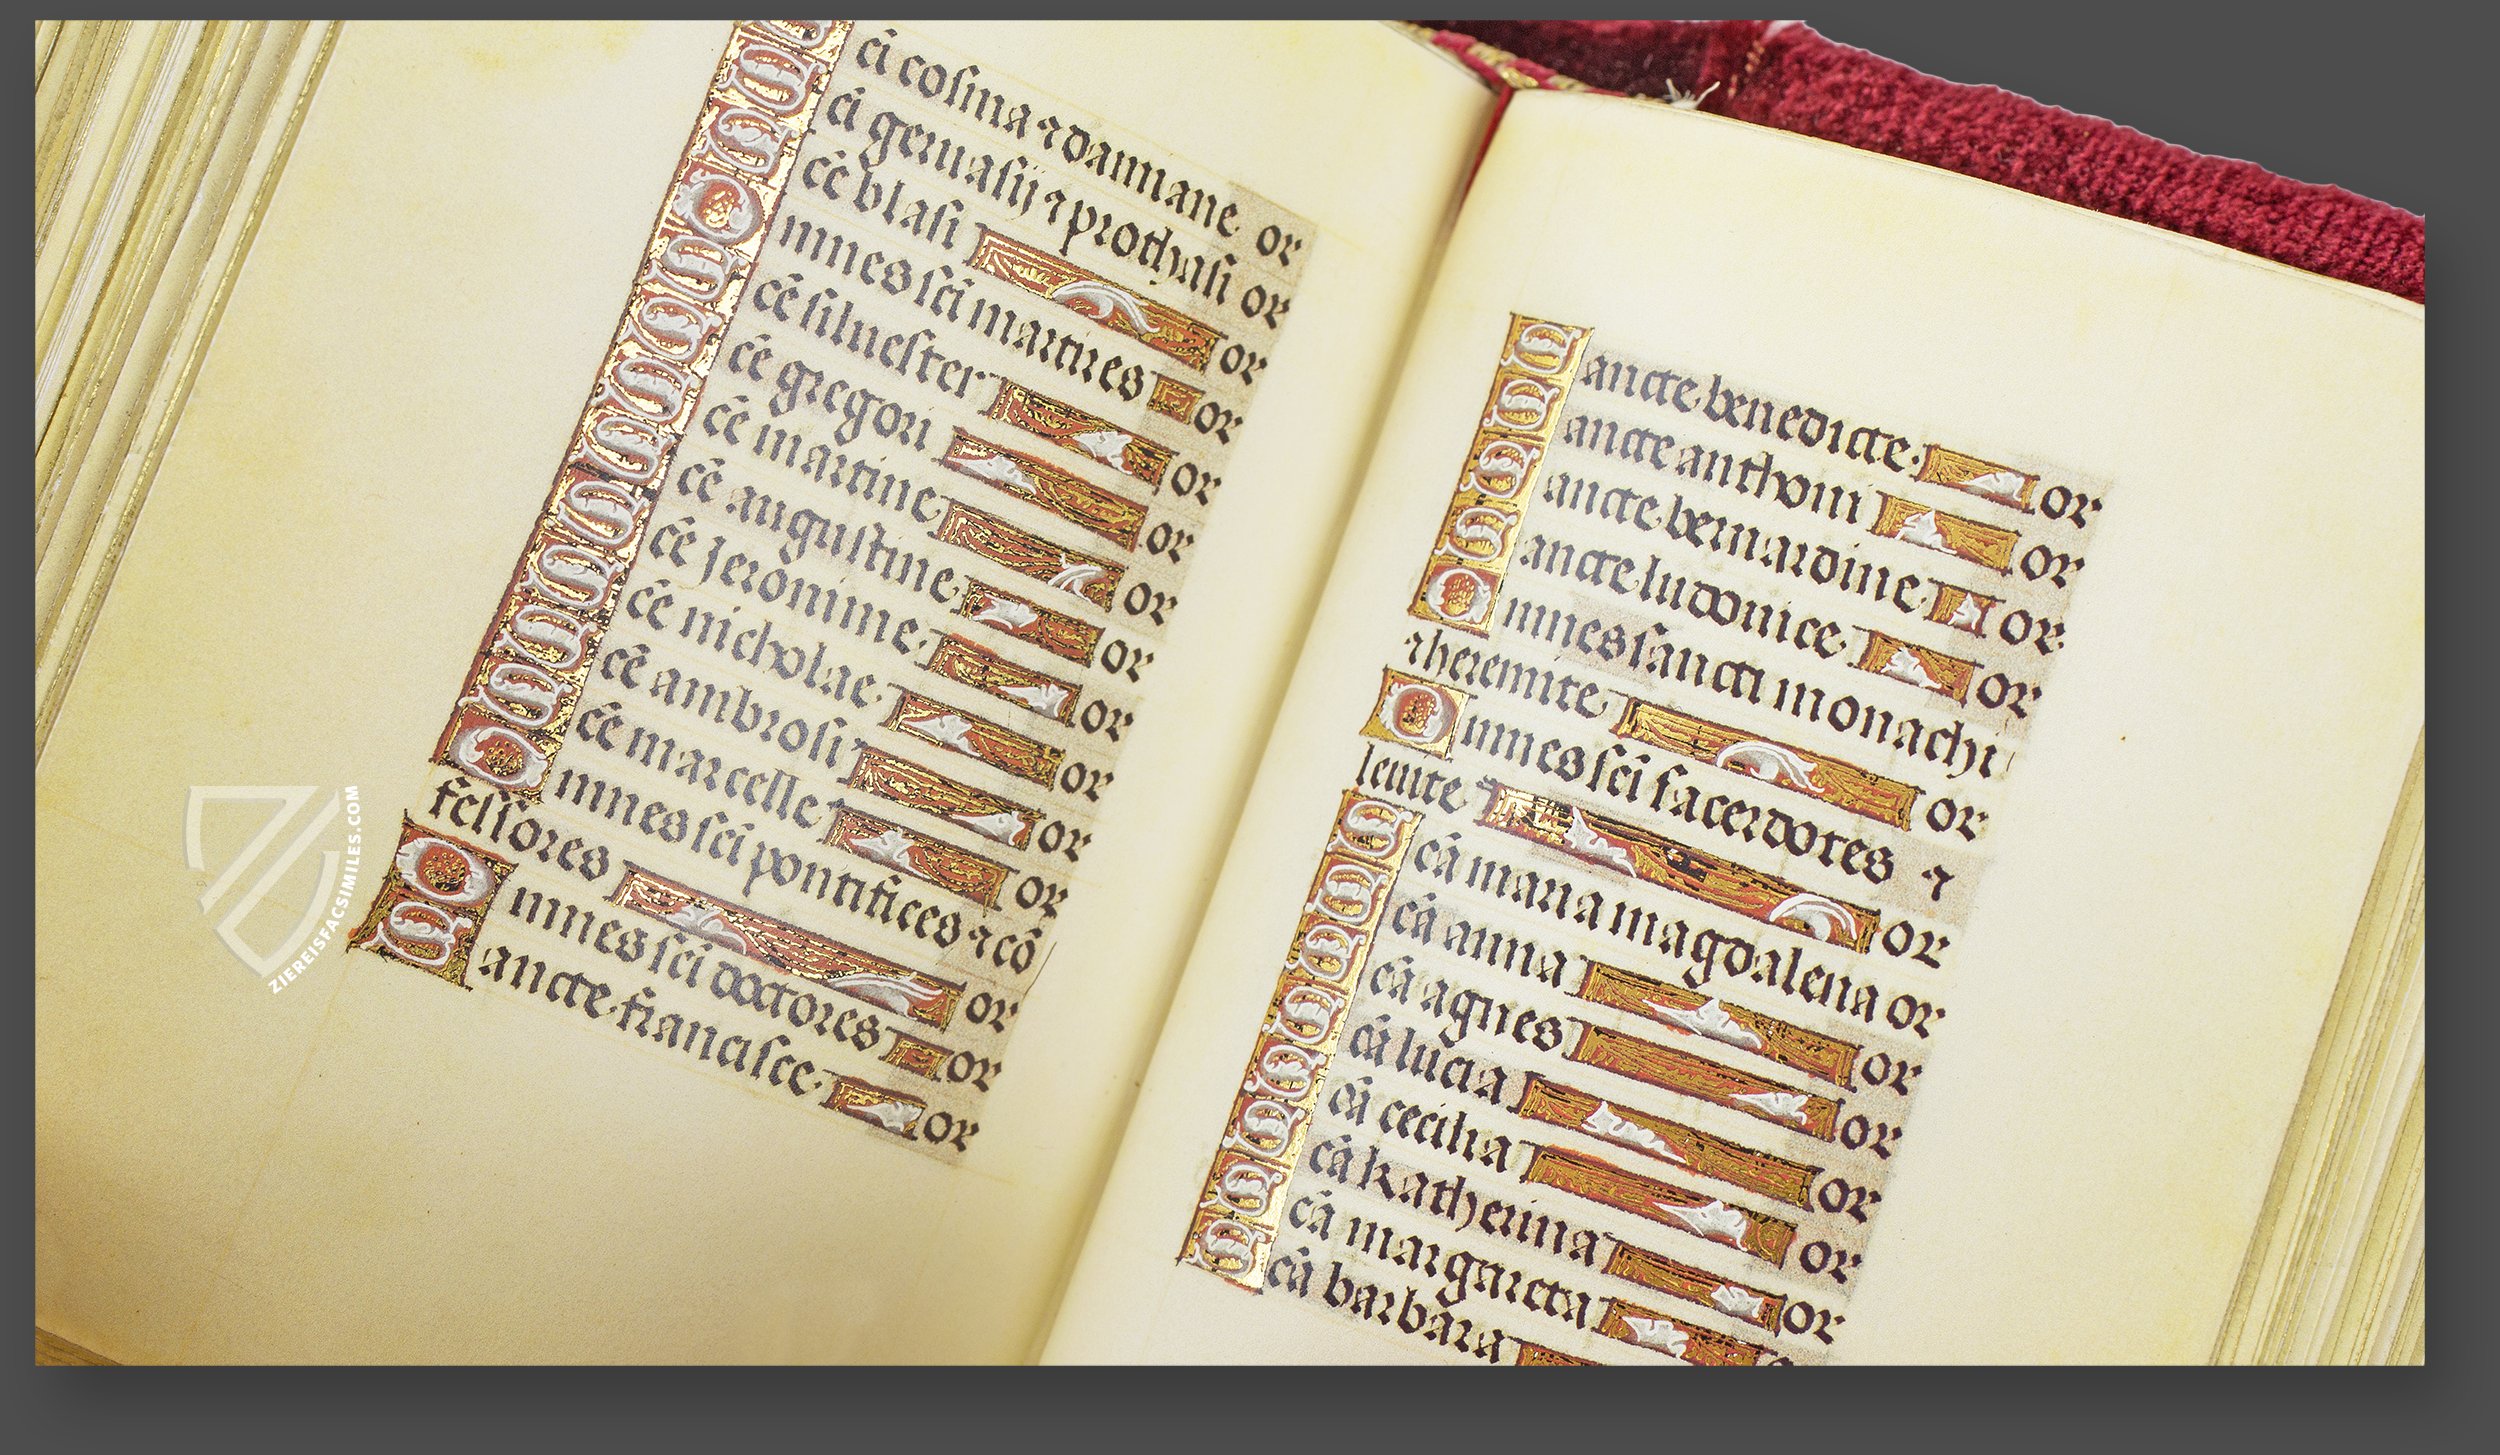 Sci cosma ⁊ damiane or
Sci geruasij ⁊ prothasi or
Scē blasi or
Omnes sci martires or
Scē siluester or
Scē gregori or
Scē martine or
Scē augustine or
Scē jeronime or
Scē nicholae or
Scē ambrosi or
Scē marcelle or
Omnes sci pontifices ⁊ cō
fessores or
Omnes sci doctores or
Sancte francisce or
Sancte benedicte or
Sancte anthoni or
Sancte bernardine or
Sancte ludouice or
Omnes sancti monachi
⁊ heremite or
Omnes sci sacerdotes ⁊
leuite or
Scā maria magdalena or
Scā anna or
Scā agnes or
Scā lucia or
Scā cecilia or
Scā katherina or
Scā margareta
Scā barbara
ZIEREISFACSIMILES.COM